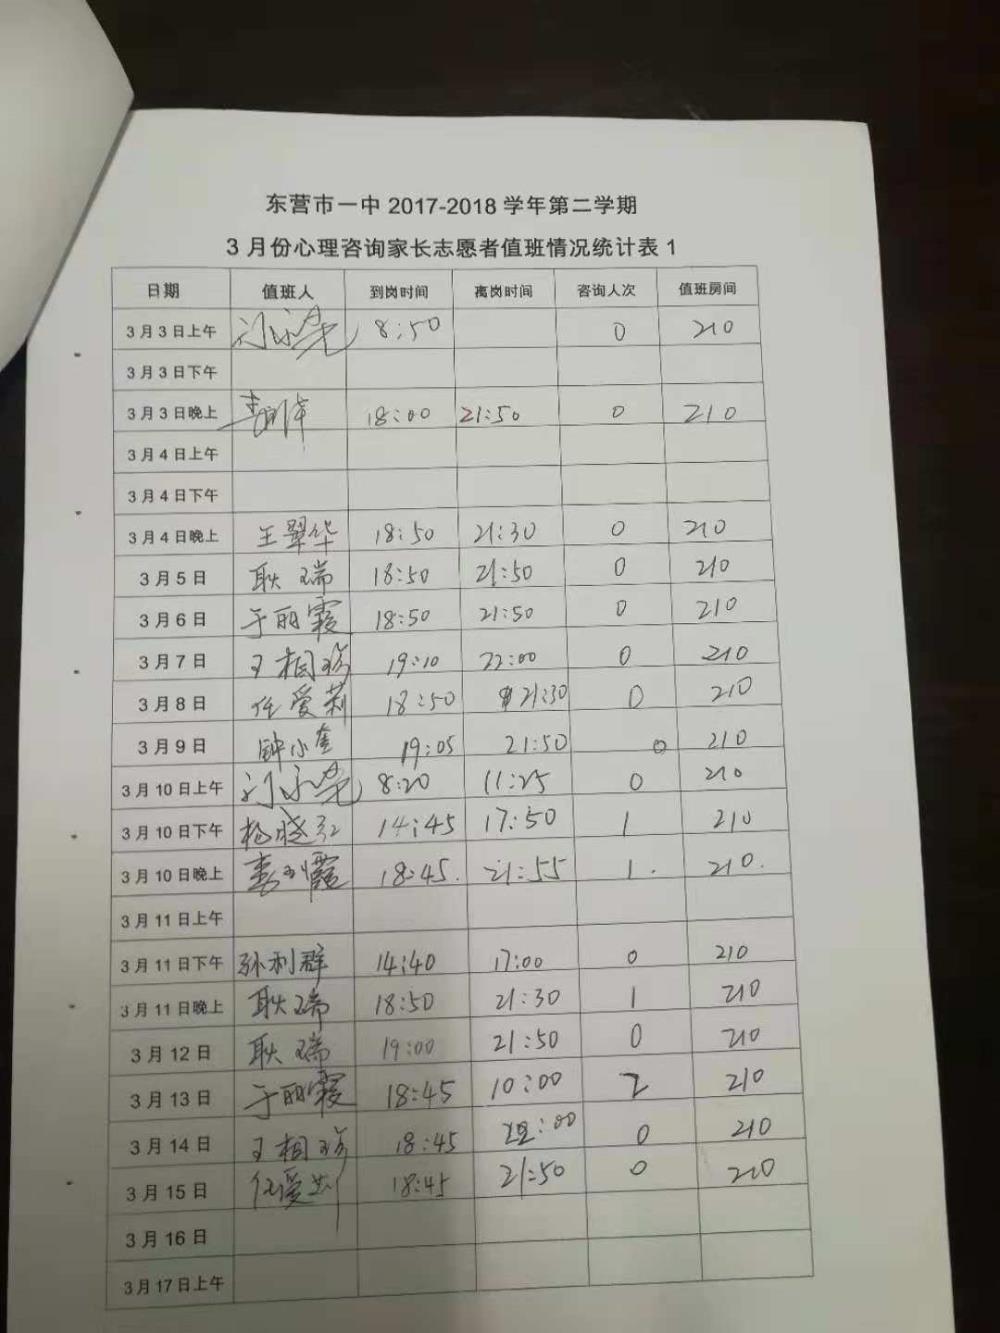 东营市一中 2017-2018 学年第二学期
3 月份心理咨询家长志愿者值班情况统计表 1
日期 值班人 到岗时间 离岗时间 咨询人次 值班房间
3 月 3 日上午 8:50 0 210
3 月 3 日下午
3 月 3 日晚上 18:00 21:50 0 210
3 月 4 日上午
3 月 4 日下午
3 月 4 日晚上 王翠华 18:50 21:30 0 210
3 月 5 日 耿瑞 18:50 21:50 0 210
3 月 6 日 于丽霞 18:50 21:50 0 210
3 月 7 日 王相 19:10 22:00 0 210
3 月 8 日 任爱莉 18:50 21:30 0 210
3 月 9 日 钟小奎 19:05 21:50 0 210
3 月 10 日上午 8:20 11:25 0 210
3 月 10 日下午 杨晓红 14:45 17:50 1 210
3 月 10 日晚上 18:45. 21:55 1. 210.
3 月 11 日上午
3 月 11 日下午 孙利群 14:40 17:00 0 210
3 月 11 日晚上 耿瑞 18:50 21:30 1 210
3 月 12 日 耿瑞 19:00 21:50 0 210
3 月 13 日 于丽霞 18:45 10:00 2 210
3 月 14 日 王相 18:45 22:00 0 210
3 月 15 日 任爱莉 18:45 21:50 0 210
3 月 16 日
3 月 17 日上午